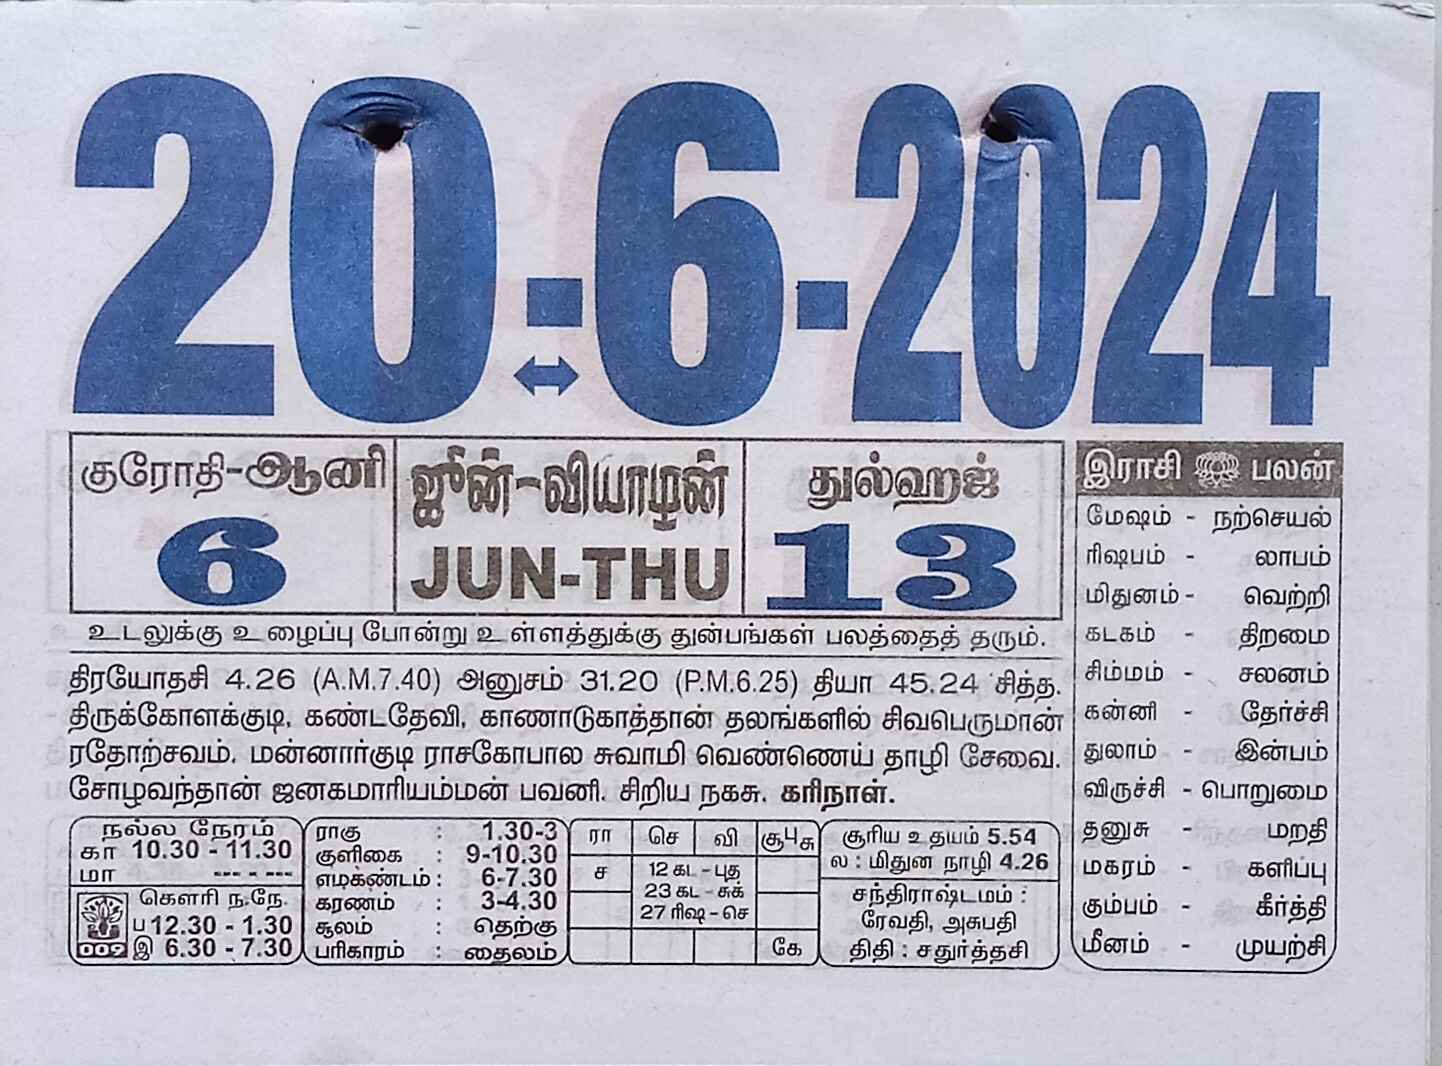 20-6-2024
குரோதி-ஆனி
6
ஜூன்-வியாழன்
JUN-THU
துல்ஹஜ்
13
உடலுக்கு உழைப்பு போன்று உள்ளத்துக்கு துன்பங்கள் பலத்தைத் தரும்.
திரயோதசி 4.26 (A.M.7.40) அனுசம் 31.20 (P.M.6.25) தியா 45.24 சித்த.
திருக்கோளக்குடி, கண்டதேவி, காணாடுகாத்தான் தலங்களில் சிவபெருமான்
ரதோற்சவம். மன்னார்குடி ராசகோபால சுவாமி வெண்ணெய் தாழி சேவை.
சோழவந்தான் ஜனகமாரியம்மன் பவனி. சிறிய நகசு. கரிநாள்.
நல்ல நேரம்
கா 10.30 - 11.30
மா --- - ---
கௌரி ந.நே.
ப 12.30 - 1.30
இ 6.30 - 7.30
002
ராகு : 1.30-3
குளிகை : 9-10.30
எமகண்டம் : 6-7.30
கரணம் : 3-4.30
சூலம் : தெற்கு
பரிகாரம் : தைலம்
ரா செ வி சூபுசு
ச 12 கட - புத
23 கட - சுக்
27 ரிஷ - செ
கே
சூரிய உதயம் 5.54
ல : மிதுன நாழி 4.26
சந்திராஷ்டமம் :
ரேவதி, அசுபதி
திதி : சதுர்த்தசி
இராசி பலன்
மேஷம் - நற்செயல்
ரிஷபம் - லாபம்
மிதுனம் - வெற்றி
கடகம் - திறமை
சிம்மம் - சலனம்
கன்னி - தேர்ச்சி
துலாம் - இன்பம்
விருச்சி - பொறுமை
தனுசு - மறதி
மகரம் - களிப்பு
கும்பம் - கீர்த்தி
மீனம் - முயற்சி